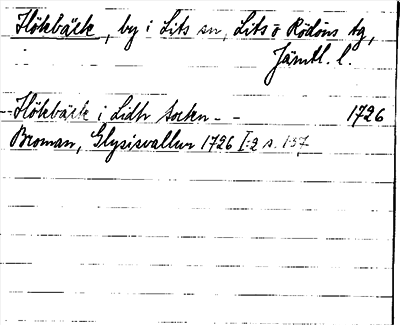 Hökbäck, by i Lits sn, Lits o Rödöns tg,
Jämtl. l.
Hökbäck i Lidh socken - - 1726
Broman, Glysisvallur 1726 I:2 s. 157